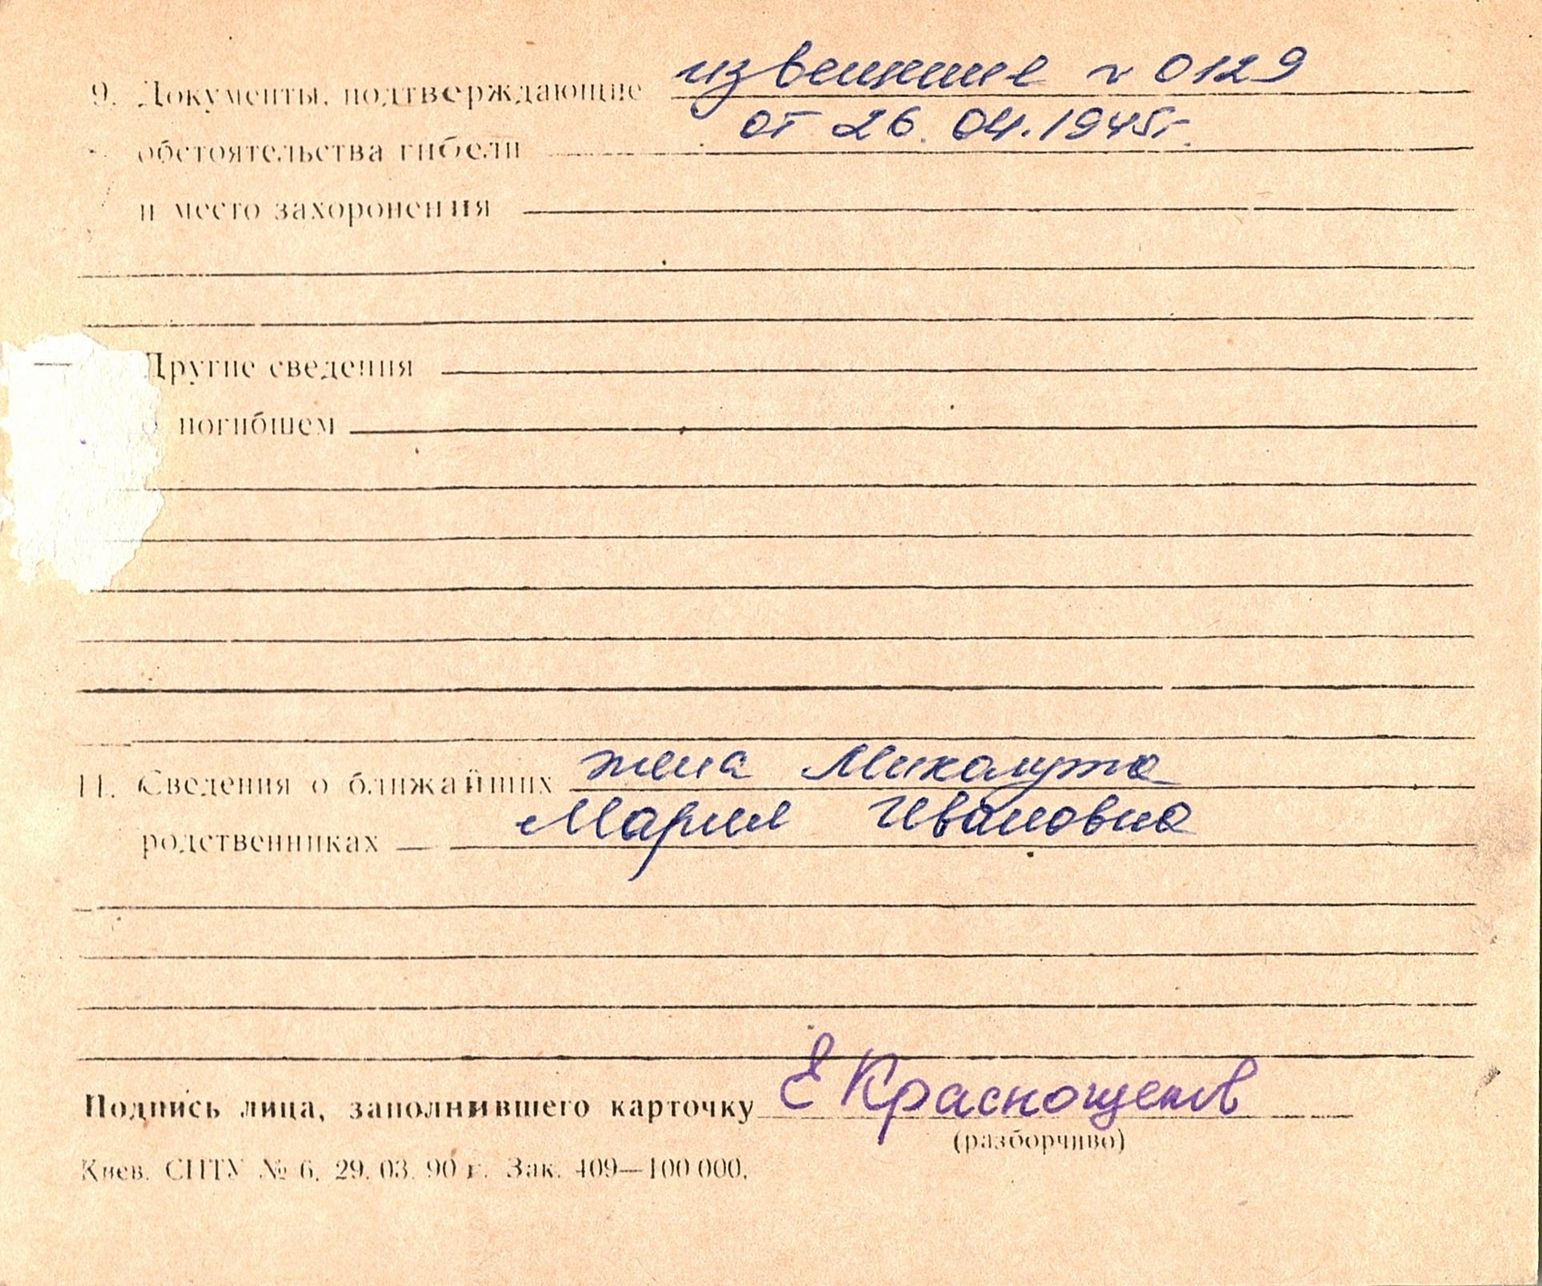 9. Документы, подтверждающие извещение № 0129
обстоятельства гибели от 26.04.1945г.
и место захоронения
Другие сведения
о погибшем
11. Сведения о ближайших жена
родственниках Мария Ивановна
Подпись лица, заполнившего карточку Е Краснощеков
(разборчиво)
Киев. СПТУ № 6. 29.03.90 г. Зак. 409—100 000.